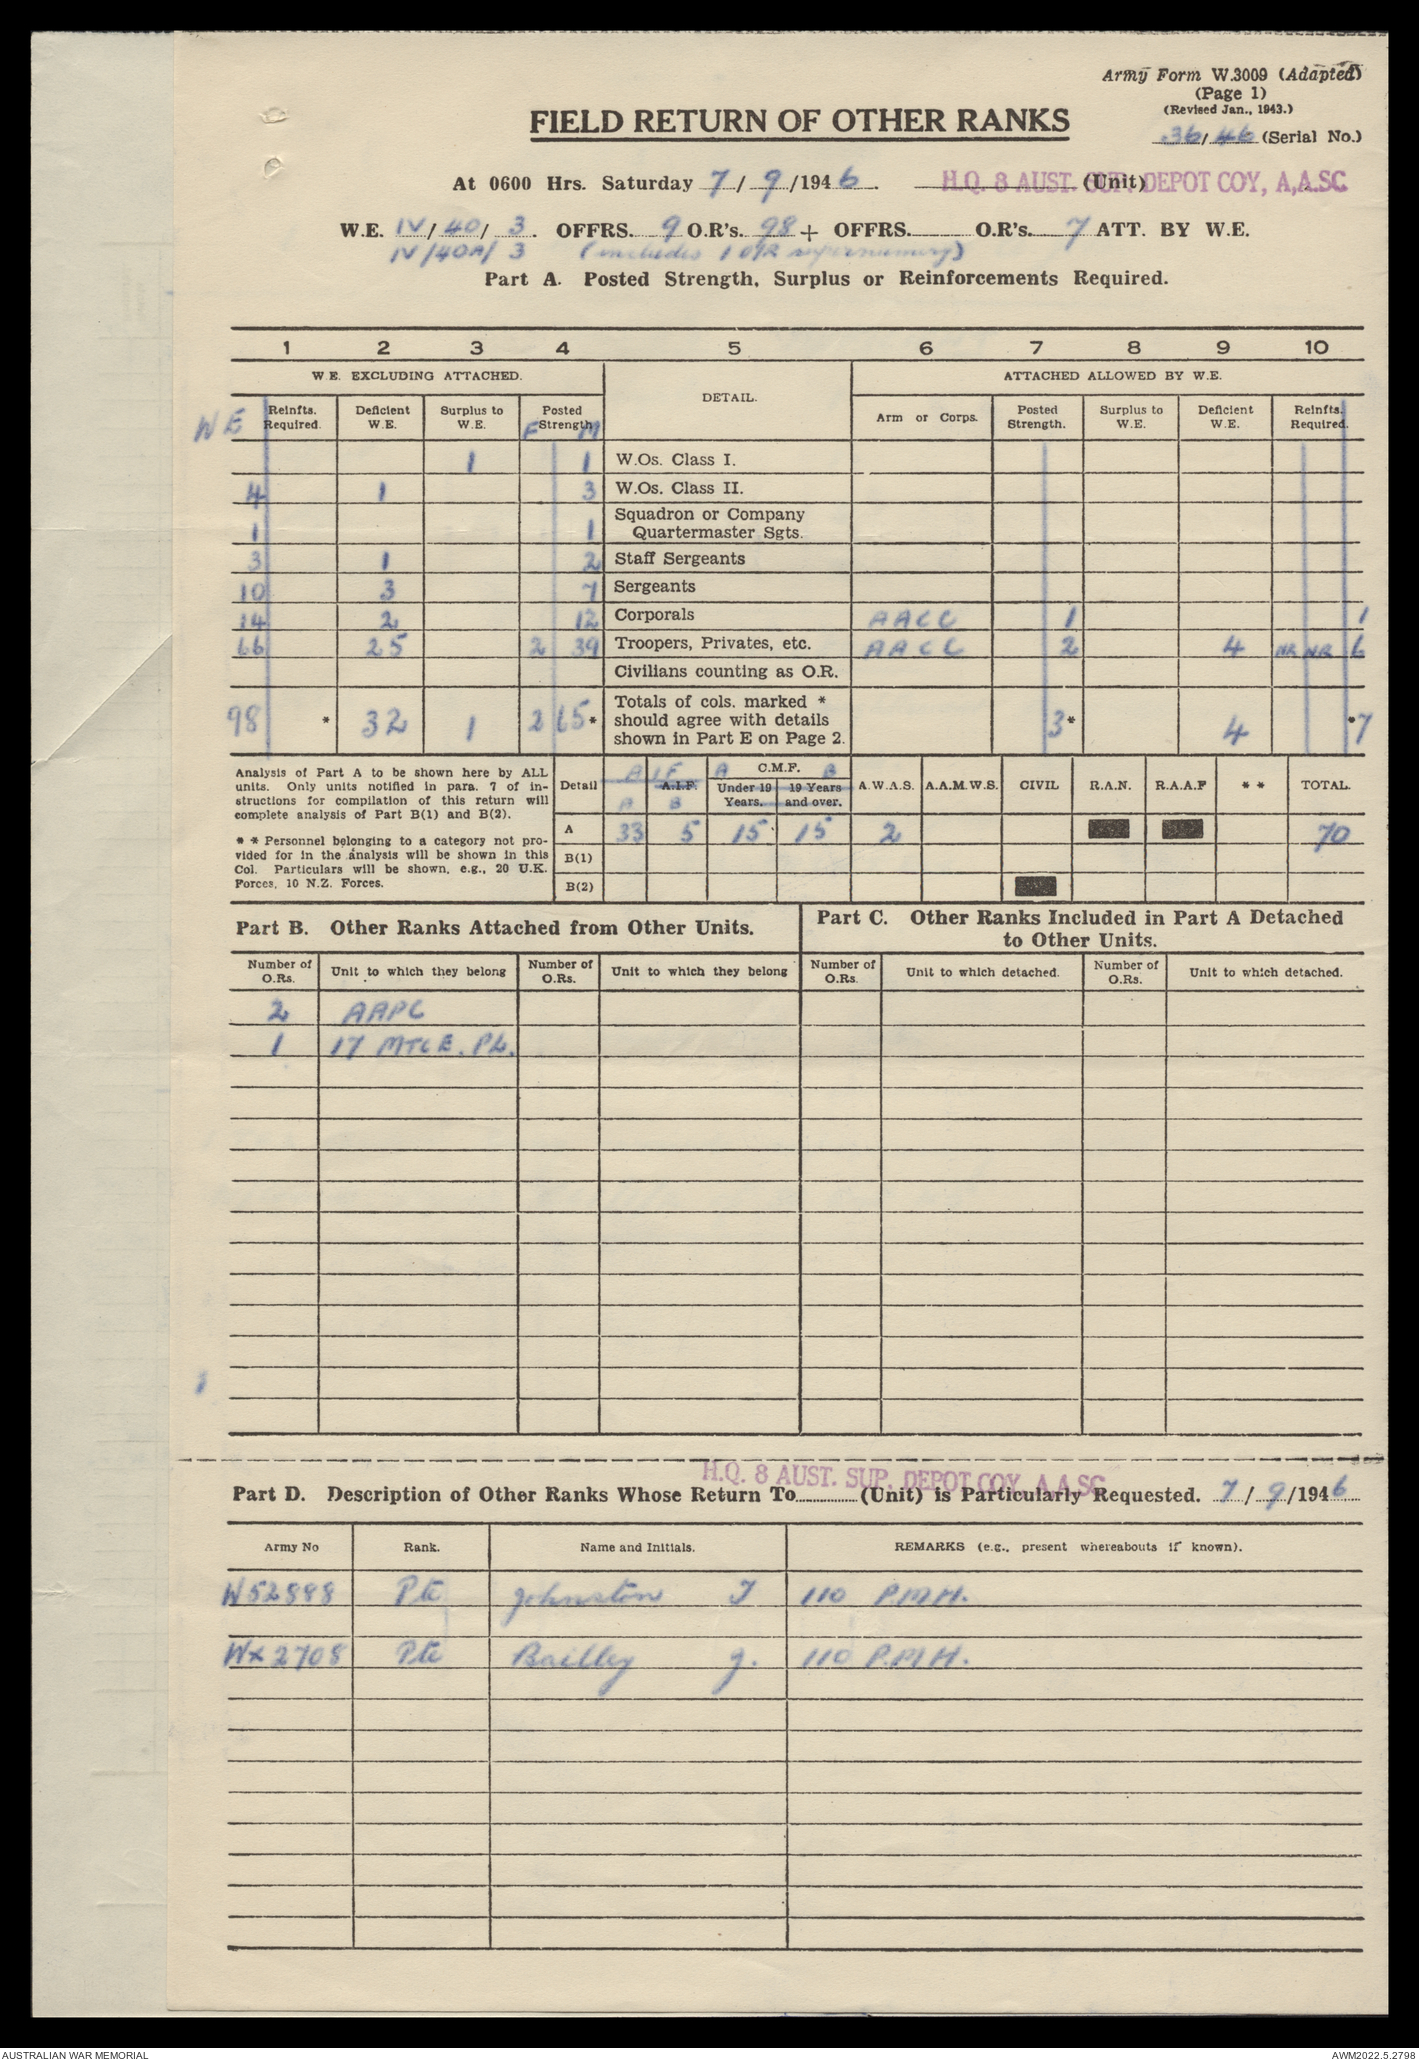 Army Form W.3009 (Adapted)
(Page 1)
(Revised Jan., 1943.)
FIELD RETURN OF OTHER RANKS
36/46 (Serial No.)
At 0600 Hrs. Saturday 7/9/1946. H.Q. 8 AUST. SUP. DEPOT COY, A.A.SC (Unit)
W.E. IV/40/3. OFFRS. 9 O.R's. 98 + OFFRS. O.R's. 7 ATT. BY W.E.
IV/40A/3 (includes 1 O/R supernumery)
Part A. Posted Strength, Surplus or Reinforcements Required.
1 2 3 4 5 6 7 8 9 10
W.E. EXCLUDING ATTACHED. DETAIL. ATTACHED ALLOWED BY W.E.
WE Reinfts. Required. Deficient W.E. Surplus to W.E. Posted Strength F M Arm or Corps. Posted Strength. Surplus to W.E. Deficient W.E. Reinfts. Required.
1 1 W.Os. Class I.
4 1 3 W.Os. Class II.
1 1 Squadron or Company Quartermaster Sgts.
3 1 2 Staff Sergeants
10 3 7 Sergeants
14 2 12 Corporals AACC 1 1
66 25 2 39 Troopers, Privates, etc. AACC 2 4 NR NR 6
Civilians counting as O.R.
98 * 32 1 2 65* Totals of cols. marked * should agree with details shown in Part E on Page 2. 3* 4 *7
Analysis of Part A to be shown here by ALL
units. Only units notified in para. 7 of in-
structions for compilation of this return will
complete analysis of Part B(1) and B(2).
* * Personnel belonging to a category not pro-
vided for in the analysis will be shown in this
Col. Particulars will be shown, e.g., 20 U.K.
Forces, 10 N.Z. Forces.
Detail AIF A.I.F. A C.M.F. B A.W.A.S. A.A.M.W.S. CIVIL R.A.N. R.A.A.F * * TOTAL.
A B Under 19 Years. 19 Years and over.
A 33 5 15 15 2 70
B(1)
B(2)
Part B. Other Ranks Attached from Other Units.
Part C. Other Ranks Included in Part A Detached
to Other Units.
Number of O.Rs. Unit to which they belong Number of O.Rs. Unit to which they belong Number of O.Rs. Unit to which detached. Number of O.Rs. Unit to which detached.
2 AAPC
1 17 MTCE. PL.
H.Q. 8 AUST. SUP. DEPOT COY, A.A.SC
Part D. Description of Other Ranks Whose Return To (Unit) is Particularly Requested. 7/9/1946
Army No Rank. Name and Initials. REMARKS (e.g., present whereabouts if known).
W52888 Pte Johnston J 110 P.M.H.
WX2708 Pte Bailley J. 110 P.M.H.
AUSTRALIAN WAR MEMORIAL
AWM2022.5.2798